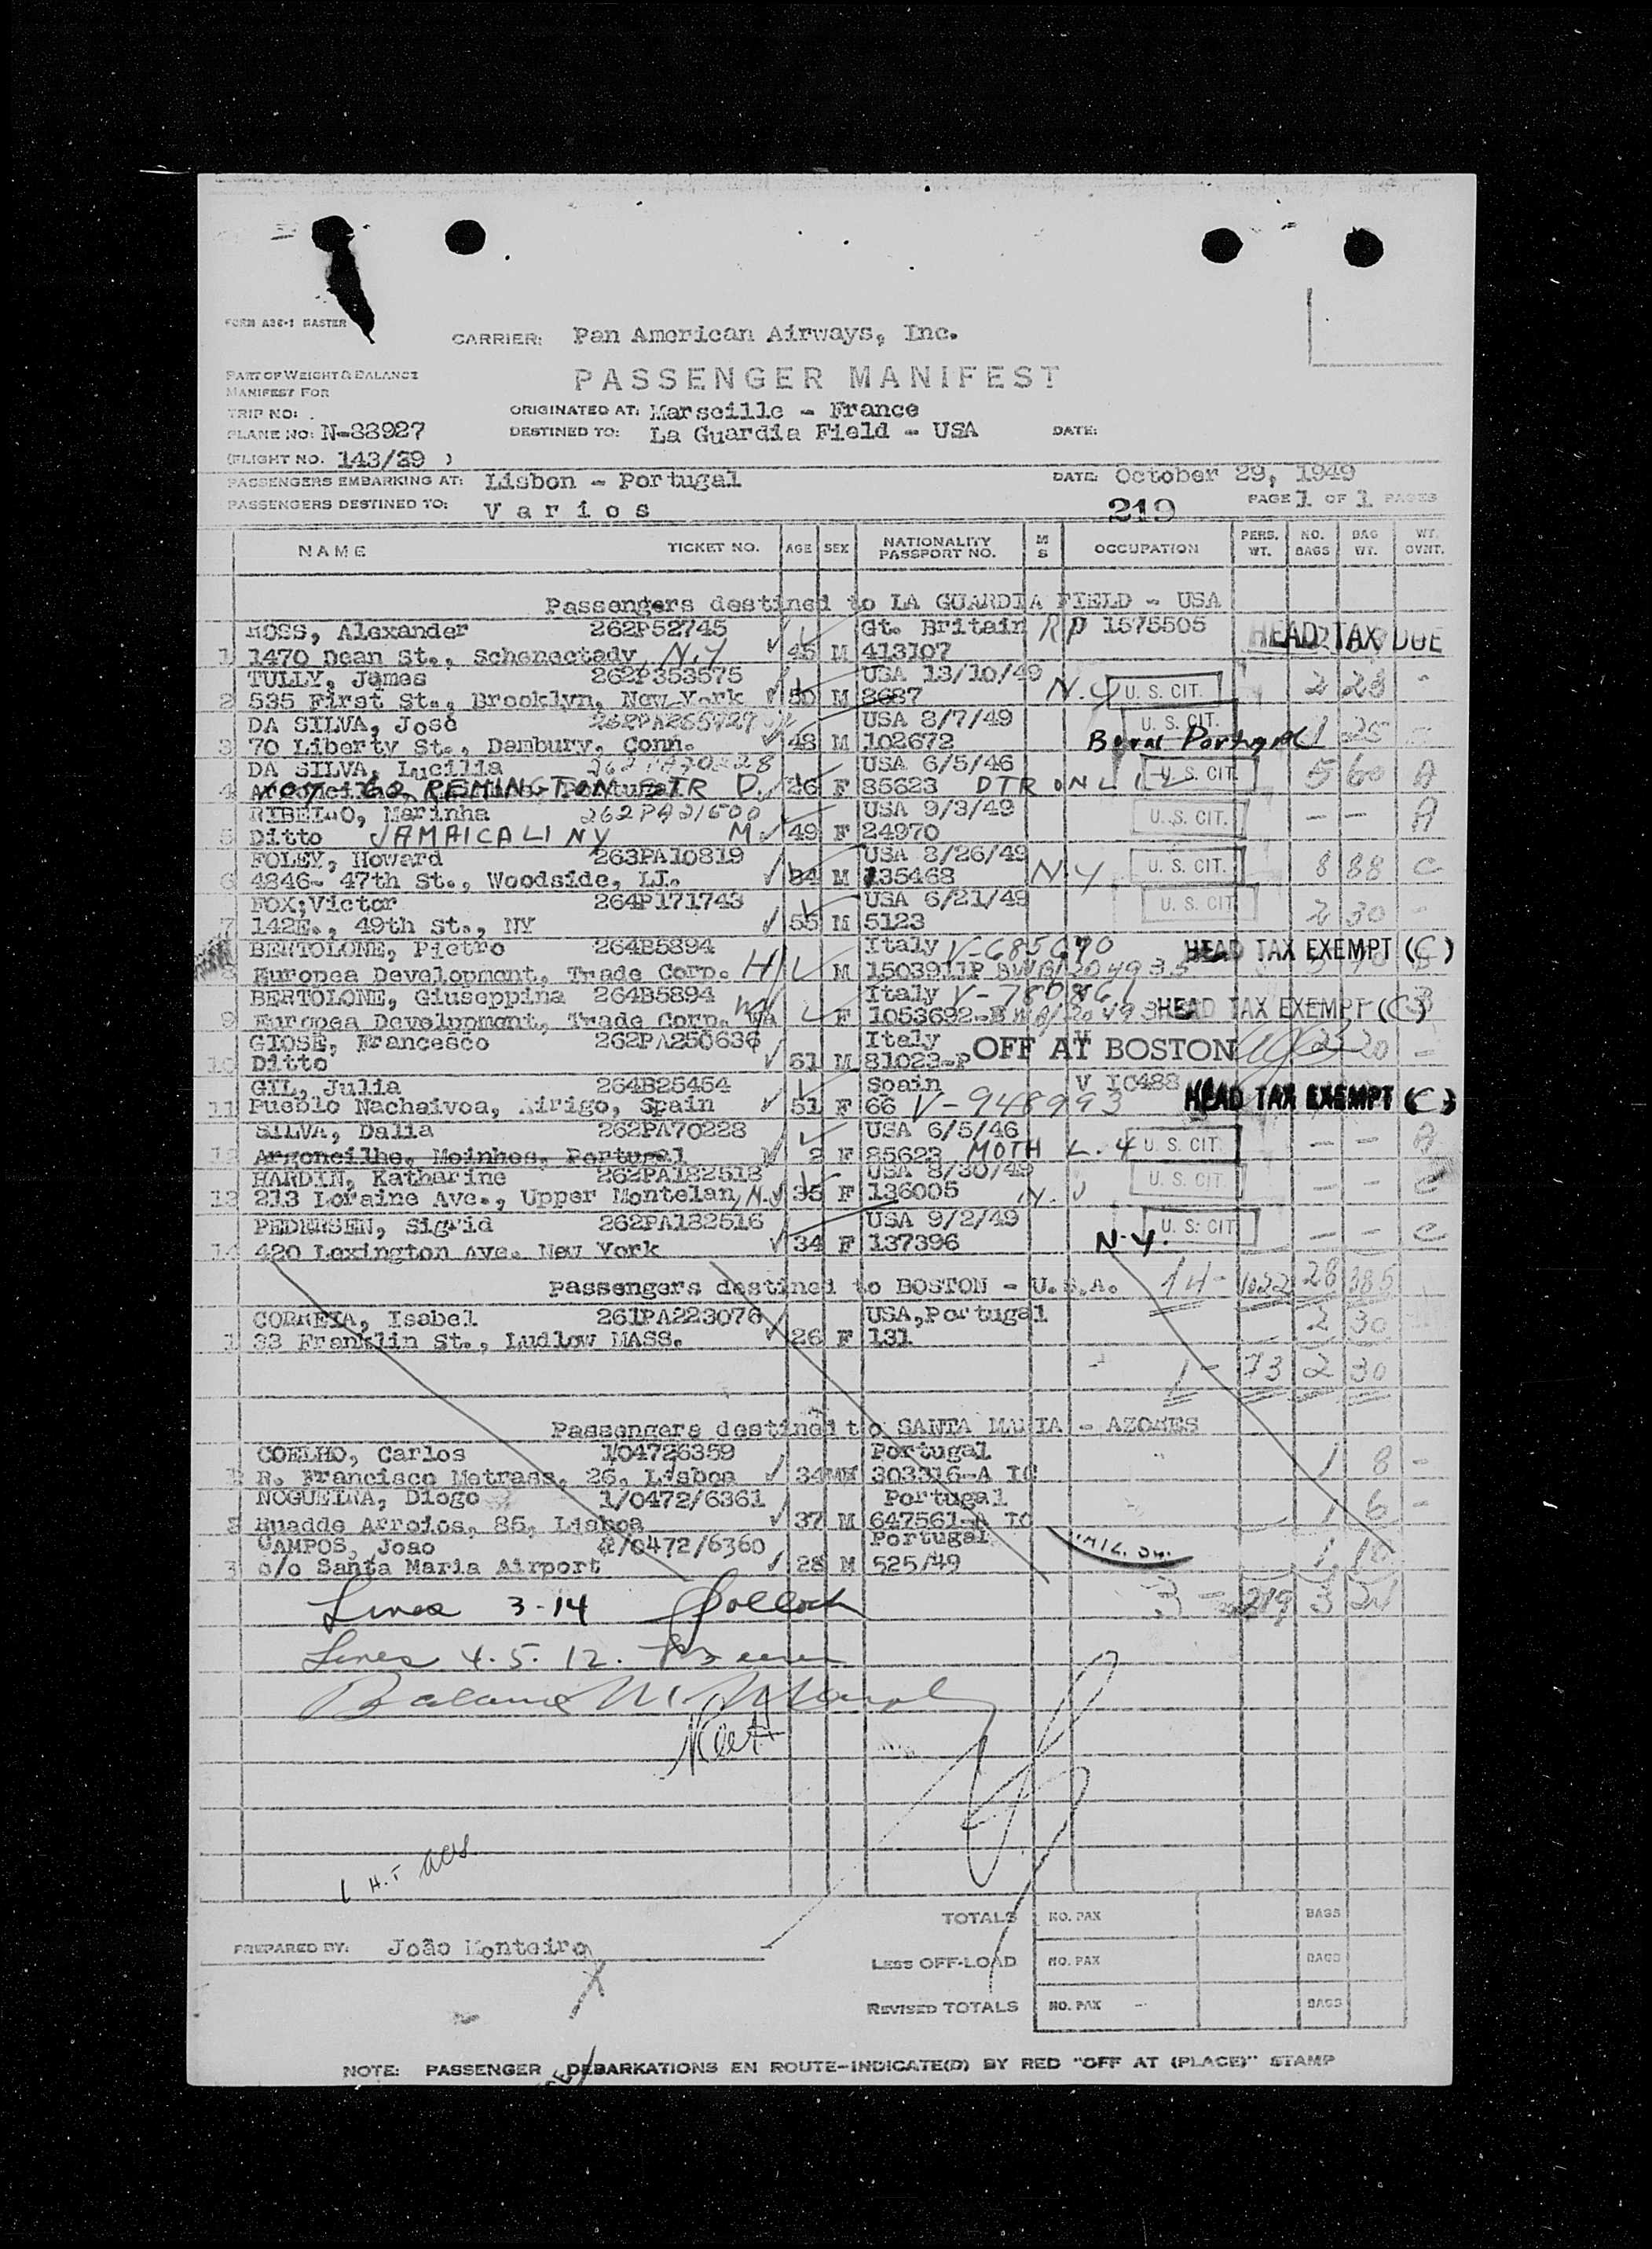 FORM A36-1 MASTER
CARRIER: Pan American Airways, Inc.
PART OF WEIGHT & BALANCE
MANIFEST FOR
PASSENGER MANIFEST
TRIP NO:
ORIGINATED AT: Marseille - France
PLANE NO: N-88927
DESTINED TO: La Guardia Field - USA DATE:
(FLIGHT NO. 143/29 )
PASSENGERS EMBARKING AT: Lisbon - Portugal DATE: October 29, 1949
PASSENGERS DESTINED TO: Varios 219 PAGE 1 OF 1 PAGES
NAME TICKET NO. AGE SEX NATIONALITY PASSPORT NO. M S OCCUPATION PERS. WT. NO. BAGS BAG WT. WT. OVNT.
Passengers destined to LA GUARDIA FIELD - USA
ROSS, Alexander 262P52745 Gt. Britain RP 1575505 HEAD TAX DUE
1 1470 Dean St., Schenectady N.Y 45 M 413107
TULLY, James 262P353575 USA 13/10/49
2 535 First St., Brooklyn, New York 50 M 3687 N.Y U. S. CIT. 2 28 -
DA SILVA, José USA 8/7/49 U. S. CIT.
3 70 Liberty St., Danbury, Conn. 48 M 102672 Born Portugal 1 25
DA SILVA, Lucilia USA 6/5/46
4 REMINGTON STR D. 26 F 85623 DTR ON L U. S. CIT. 5 60 A
RIBEIRO, Marinha 262PA21500 USA 9/3/49
5 Ditto JAMAICA LI NY M 49 F 24970 U. S. CIT. - - A
FOLEY, Howard 263PA10819 USA 8/26/49
6 4846- 47th St., Woodside, LI. 34 M 135468 N.Y. U. S. CIT. 8 88 C
FOX; Victor 264P171743 USA 6/21/49
7 142E., 49th St., NY 55 M 5123 U. S. CIT. 2 30 -
BERTOLONE, Pietro 264B5894 Italy HEAD TAX EXEMPT (C)
Europea Development, Trade Corp. H M 1503911P
BERTOLONE, Giuseppina 264B5894 Italy
9 Europea Development, Trade Corp. F 1053692 HEAD TAX EXEMPT (C)
GIOSE, Francesco 262PA250636 Italy
10 Ditto 61 M 81023-P OFF AT BOSTON 20 -
GIL, Julia 264B25454 Spain V IC488
11 Pueblo Nachaivoa, Airigo, Spain 51 F 66 V-948993 HEAD TAX EXEMPT (C)
SILVA, Dalia 262PA70228 USA 6/5/46
12 Argoncilhe, Moinhos, Portugal 2 F 85623 MOTH L. 4 U. S. CIT. - - A
HARDIN, Katharine 262PA182518 USA 8/30/49
13 213 Loraine Ave., Upper Montelan, N.J 35 F 136005 U. S. CIT. - - C
PEDERSEN, Sigrid 262PA182516 USA 9/2/49
14 420 Lexington Ave. New York 34 F 137396 N.Y. U. S. CIT. - - C
Passengers destined to BOSTON - U.S.A. 14 - 1022 28 385
CORREIA, Isabel 261PA223076 USA, Portugal 2 30
1 33 Franklin St., Ludlow MASS. 26 F 131
1 - 73 2 30
Passengers destined to SANTA MARIA - AZORES
COELHO, Carlos 1/04726359 Portugal
1 R. Francisco Metrass, 26, Lisboa 34 M 303316-A IC 1 8 -
NOGUEIRA, Diogo 1/0472/6361 Portugal
2 Ruadde Arroios, 85, Lisboa 37 M 647561-A IC 1 6 -
CAMPOS, Joao 2/0472/6360 Portugal
3 c/o Santa Maria Airport 28 M 525/49 1 10
3 - 219 3 24
Lines 3-14
Lines 4. 5. 12.
Balance
1 H.T
TOTALS NO. PAX BAGS
PREPARED BY: João Monteiro
LESS OFF-LOAD NO. PAX BAGS
REVISED TOTALS NO. PAX BAGS
NOTE: PASSENGER DEBARKATIONS EN ROUTE-INDICATE(D) BY RED "OFF AT (PLACE)" STAMP